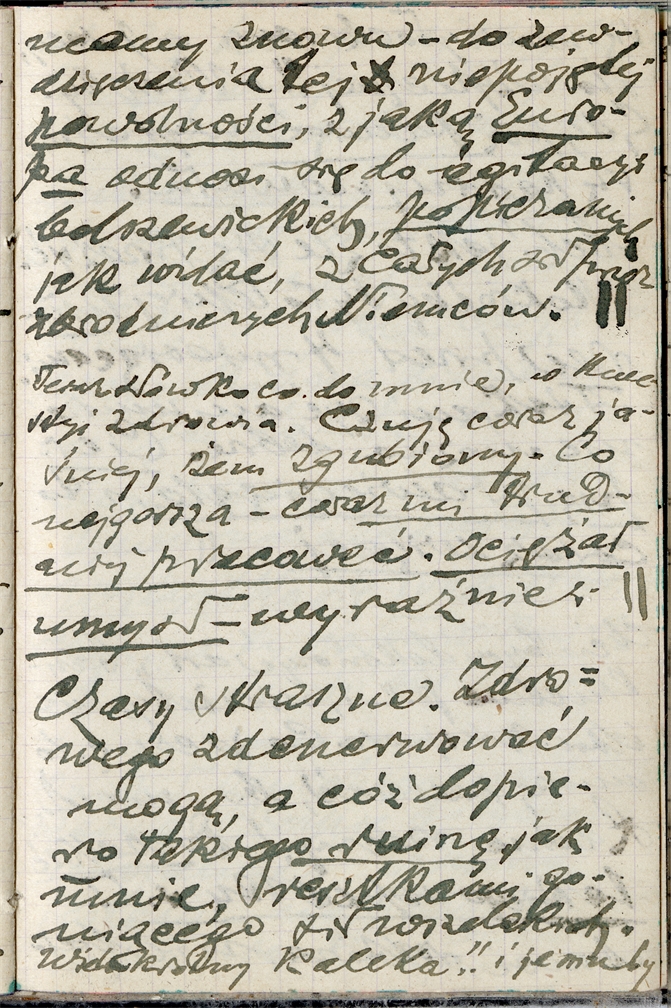 mamy znowu - do zaw-
dzięczenia tej niepojętej
powolności, z jaką Euro-
pa odnosi się do agitacyi
bolszewickich, popieranych
jak widać, z całych sił przez
zbrodniczych Niemców. ||
Teraz słówko co do mnie, w kwe-
styi zdrowia. Czuję coraz ja-
śniej, żem zgubiony. Co
najgorsza - coraz mi trud-
niej pracować. Ociężał
umysł - wyraźnie ||
Czasy straszne. Zdro=
wego zdenerwować
mogą, a cóż dopie-
ro takiego ruinę, jak
mnie, resztkami go-
niącego sił
kaleka!! i jemu by